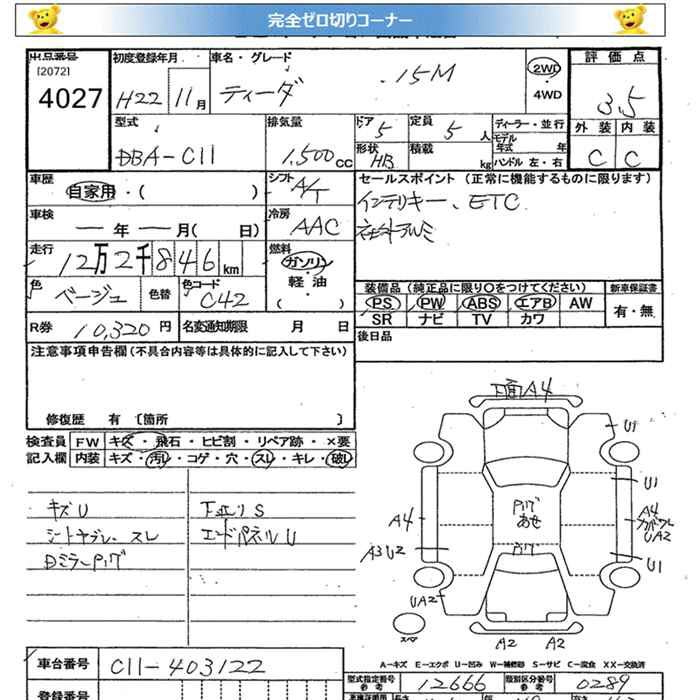 完全ゼロ切りコーナー
出品番号 初度登録年月 車名・グレード 評価点
[2072]
4027 H22 11月 ティーダ 15M 2WD・4WD 3.5
外装 内装
C C
型式 排気量 ドア 定員 ディーラー・並行
DBA-C11 1,500cc 5 5人 モデル年式 年
形状 積載 ハンドル 左・右
HB kg
車歴 シフト セールスポイント(正常に機能するものに限ります)
自家用・( ) A/T インテリキー、ETC
車検 冷房
ー年ー月( 日) AAC
走行 燃料
12万2千846km ガソリン・軽油・( )
装備品(純正品に限り○をつけてください) 新車保証書
色 色替 色コード PS PW ABS エアB AW 有・無
ベージュ C42 SR ナビ TV カワ
R券 10,320円 名変通知期限 月 日 後日品
注意事項申告欄(不具合内容等は具体的に記入して下さい)
修復歴 有 〔箇所 〕
検査員 FW キズ・飛石・ヒビ割・リペア跡・×要
記入欄 内装 キズ・汚レ・コゲ・穴・スレ・キレ・破レ
キズU 下廻りS
シートヤブレ、スレ エンドパネルU
下面A4
U1
U1
A4
A4
UA2
A3 U2
U1
UA2
スペア
A2 A2
A-キズ E-エクボ U-凹み W-補修跡 S-サビ C-腐食 XX-交換済
車台番号 C11-403122 型式指定番号 参考 12666 類別区分番号 参考 0289
登録番号